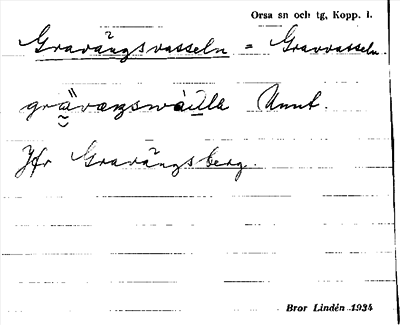 Orsa sn och tg, Kopp. l.
Gravängsvasseln = Gravvasseln.
Unnt.
Jfr Gravängsberg.
Bror Lindén 1934